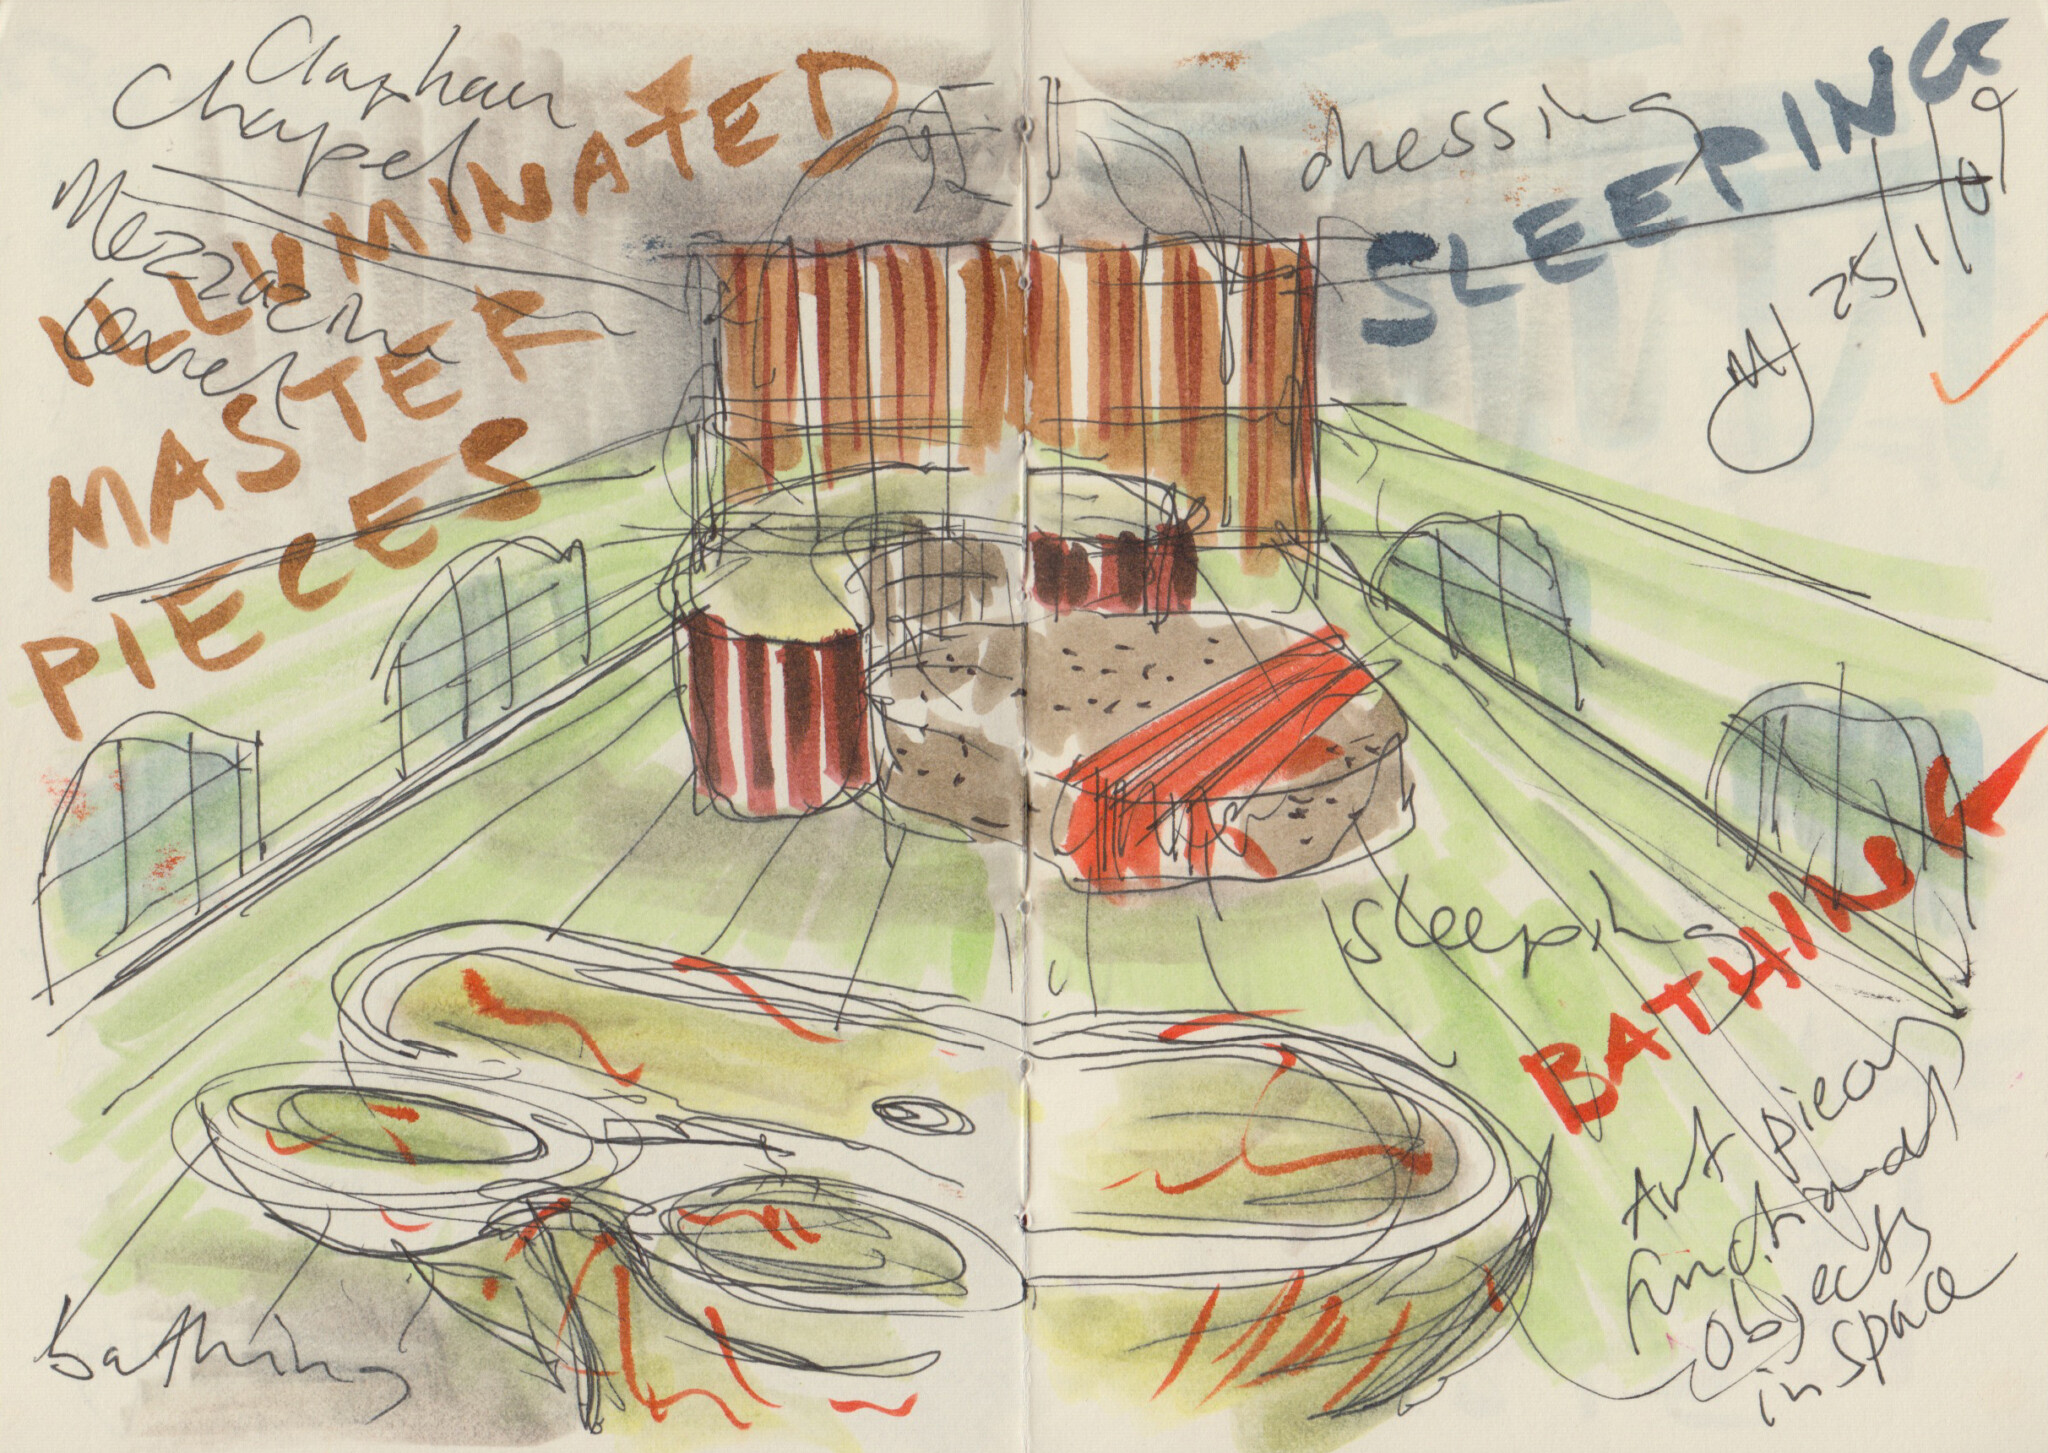 Clapham
Chapel
Mezzazine
Level
ILLUMINATED
MASTER
PIECES
dressing
SLEEPING
MJ 25/1/09
sleeping
BATHING
bathing
Art pieces
functional
objects
in space